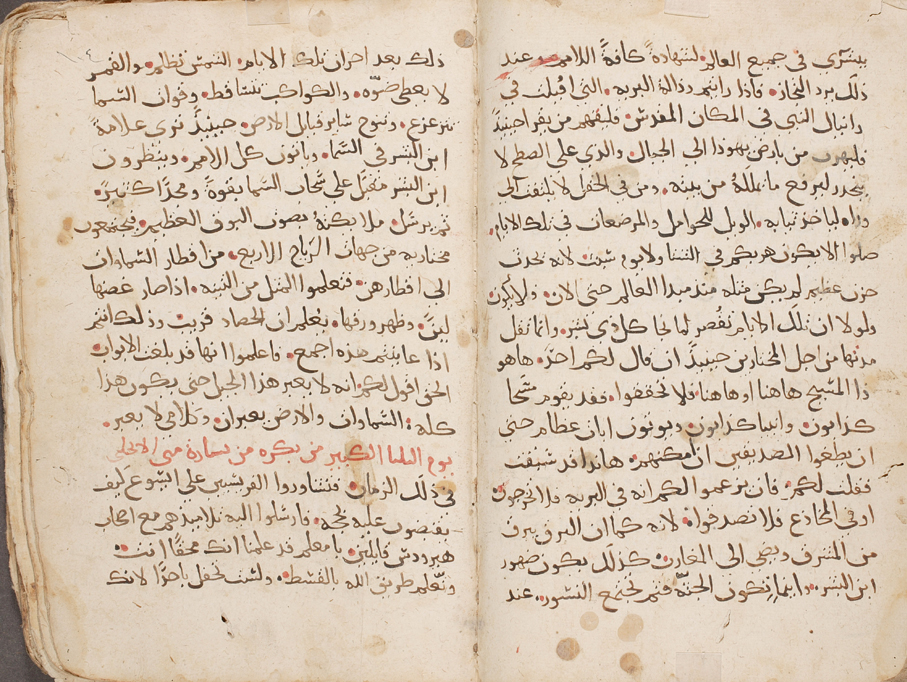 ببشرَي في جميع العالم لشهادةً كافةً اللامم عند
ذلك يرد النجاز فاذا رايتم رذالة البريه التي اقيلت في
دانيال النبي في المكان المقدس فليفهم من يقرا حينيذ
فليهرب من بارض يهوذا الي الجبال والذي علي السطح لا
ينحدر ليرفع ما يملكهُ من بيته ومن في الحقل لا يلتفت الي
وراه لياخذ ثيابه الويل للحوامل والمرضعات في تلك الايام
صلوا الا يكون هربكم في الشتا ولا يوم سبت لانه يحدث
حزن عظيم لم يكن مثله منذ مبدا العالم حتي الان ولا يكون
ولولا ان تلك الايام تقصر لما نجا كل ذي بشر وانما تقل
مدتها من اجل المختارين حينيذ ان قال لكم احد هاهو
ذا المسيح هاهنا او هاهنا فلا تحققوا فقد يقوم مسحا
كذابون وانبيا كذابون ويوتون ايات عظام حتي
ان يطغوا الصديقين ان امكنهم هاندا قد سبقت
فقلت لكم فان يزعموا لكم انه في البريه فلا تخرجون
او في المخادع فلا تصدقوا لانه كما ان البرق يبرق
من المشرق ويضي الي المغارب كذلك يكون ضهور
ابن البشر دايما تكون الجثّة فثم تجتمع النسور عند
ذلك بعد احزان تلك الايام الشمس تظلم والقمر
لا يعطي ضوّه والكواكب تتساقط وقوات السما
تتزعزع وتنوح ساير قبايل الارض حينيذ تري علامة
ابن البشر في السما وياتون كل الامم وينظرون
ابن البشر مقبل علي سحاب السما بقوة ومجدًا كثيرة
ثم يرسل ملايكتهُ بصوت البوق العظيم فيجتمعون
مختاريه من جهات الرياح الاربع من اقطار السماوات
الي اقطارهن فتعلموا المثل من التينه اذا صار غصنها
لينً وظهر ورقها يعلم ان الحصاد قريب وذلك انتم
اذا عاينتم هذه اجمع فاعلموا انها قد بلغت الابواب
الحق اقول لكم انه لا يعبر هذا الجيل حتي يكون هذا
كله السماوات والارض يعبران وكلامي لا يعبر
يوم الثلثا الكبير من بكره من بشارة متي الانجلي
في ذلك الزمان فتشاوروا الفريسيين علي اليسوع كيف
يقتصون عليه بحجه فارسلوا اليه تلاميذهم مع اصحاب
هيرودس قايلين يا معلم قد علمنا انك محقًا انت
وتعلم طريق الله بالقسط ولست تحفل باحدًا لانك